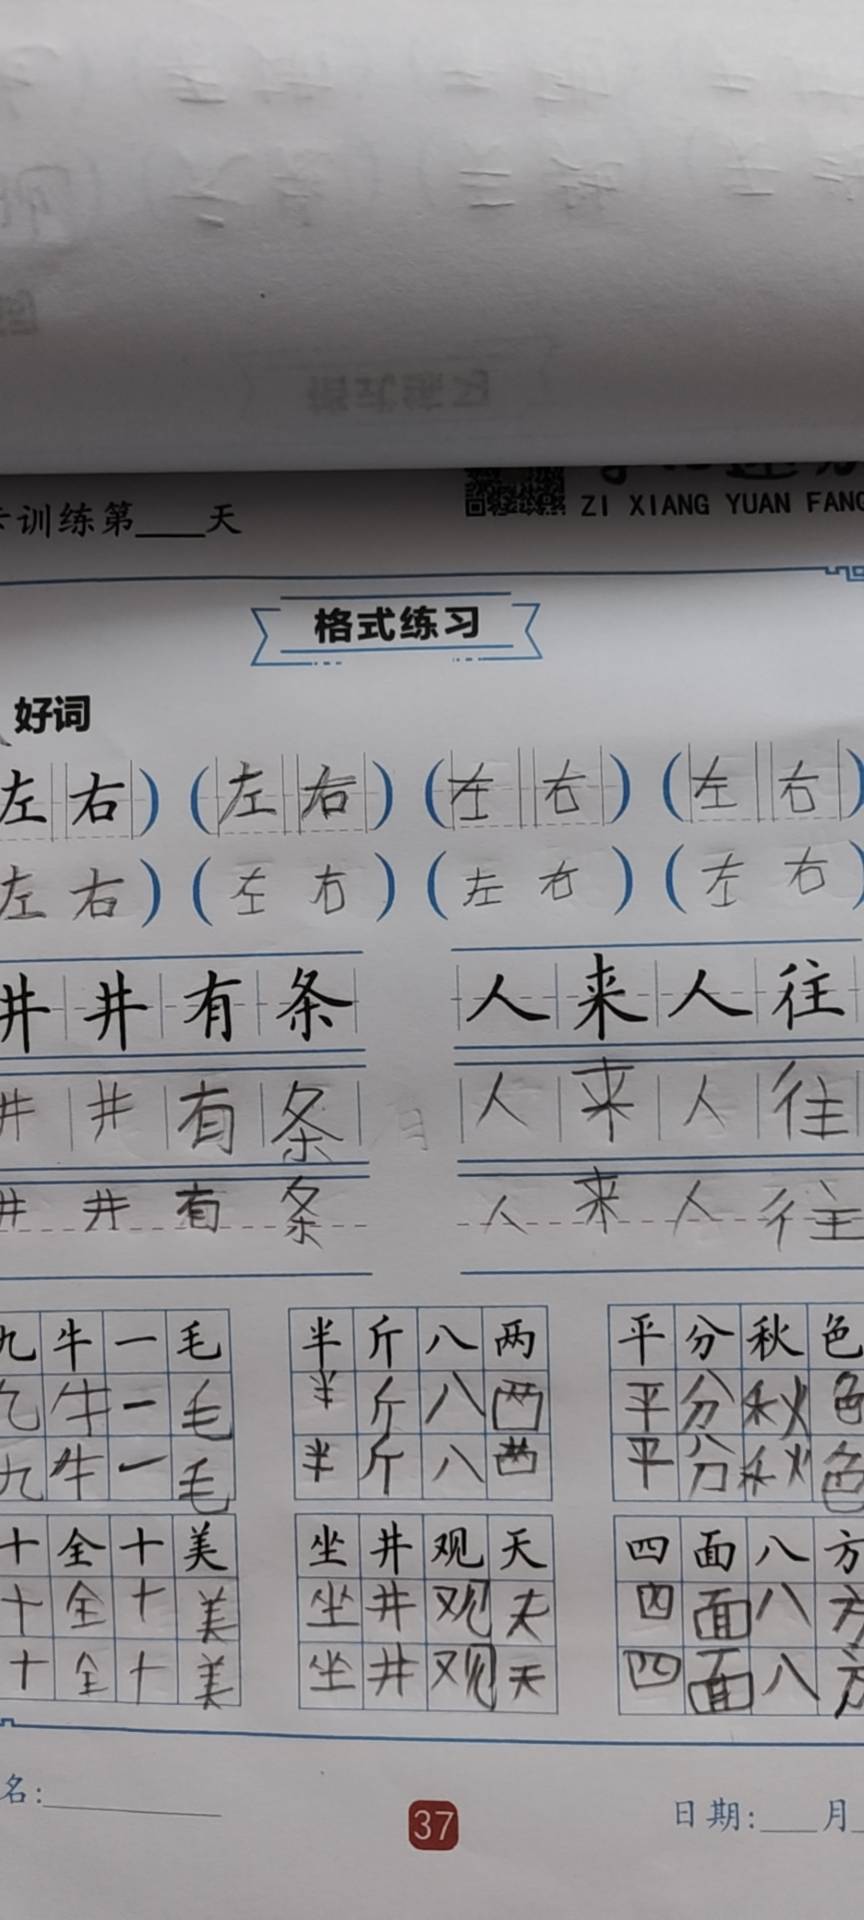 训练第____天
ZI XIANG YUAN FANG
格式练习
好词
左右）（左右）（左右）（左右）
左右）（左右）（左右）（左右）
井井有条 人来人往
井井有条 人来人往
井井有条 人来人往
九牛一毛 半斤八两 平分秋色
九牛一毛 半斤八两 平分秋色
九牛一毛 半斤八两 平分秋色
十全十美 坐井观天 四面八方
十全十美 坐井观天 四面八方
十全十美 坐井观天 四面八方
名:____ 37 日期:___月